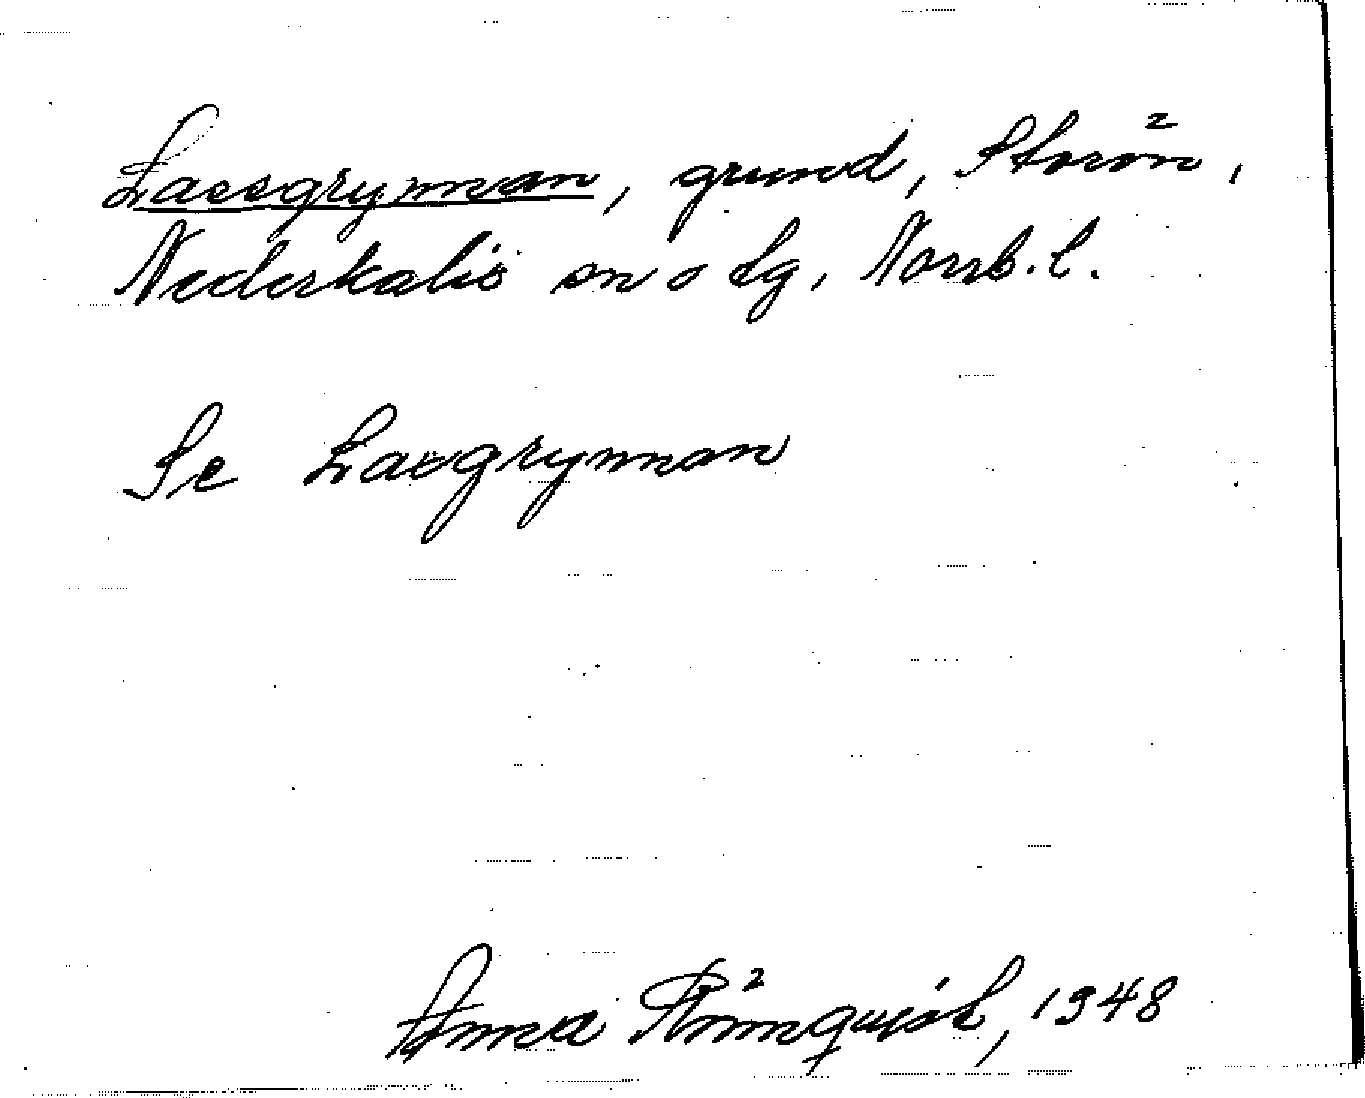 Lassgrynnan, grund, Storön,
Nederkalix sn o lg, Norrb. l.
Se Laxgrynnan
Anna Rönnqvist, 1948